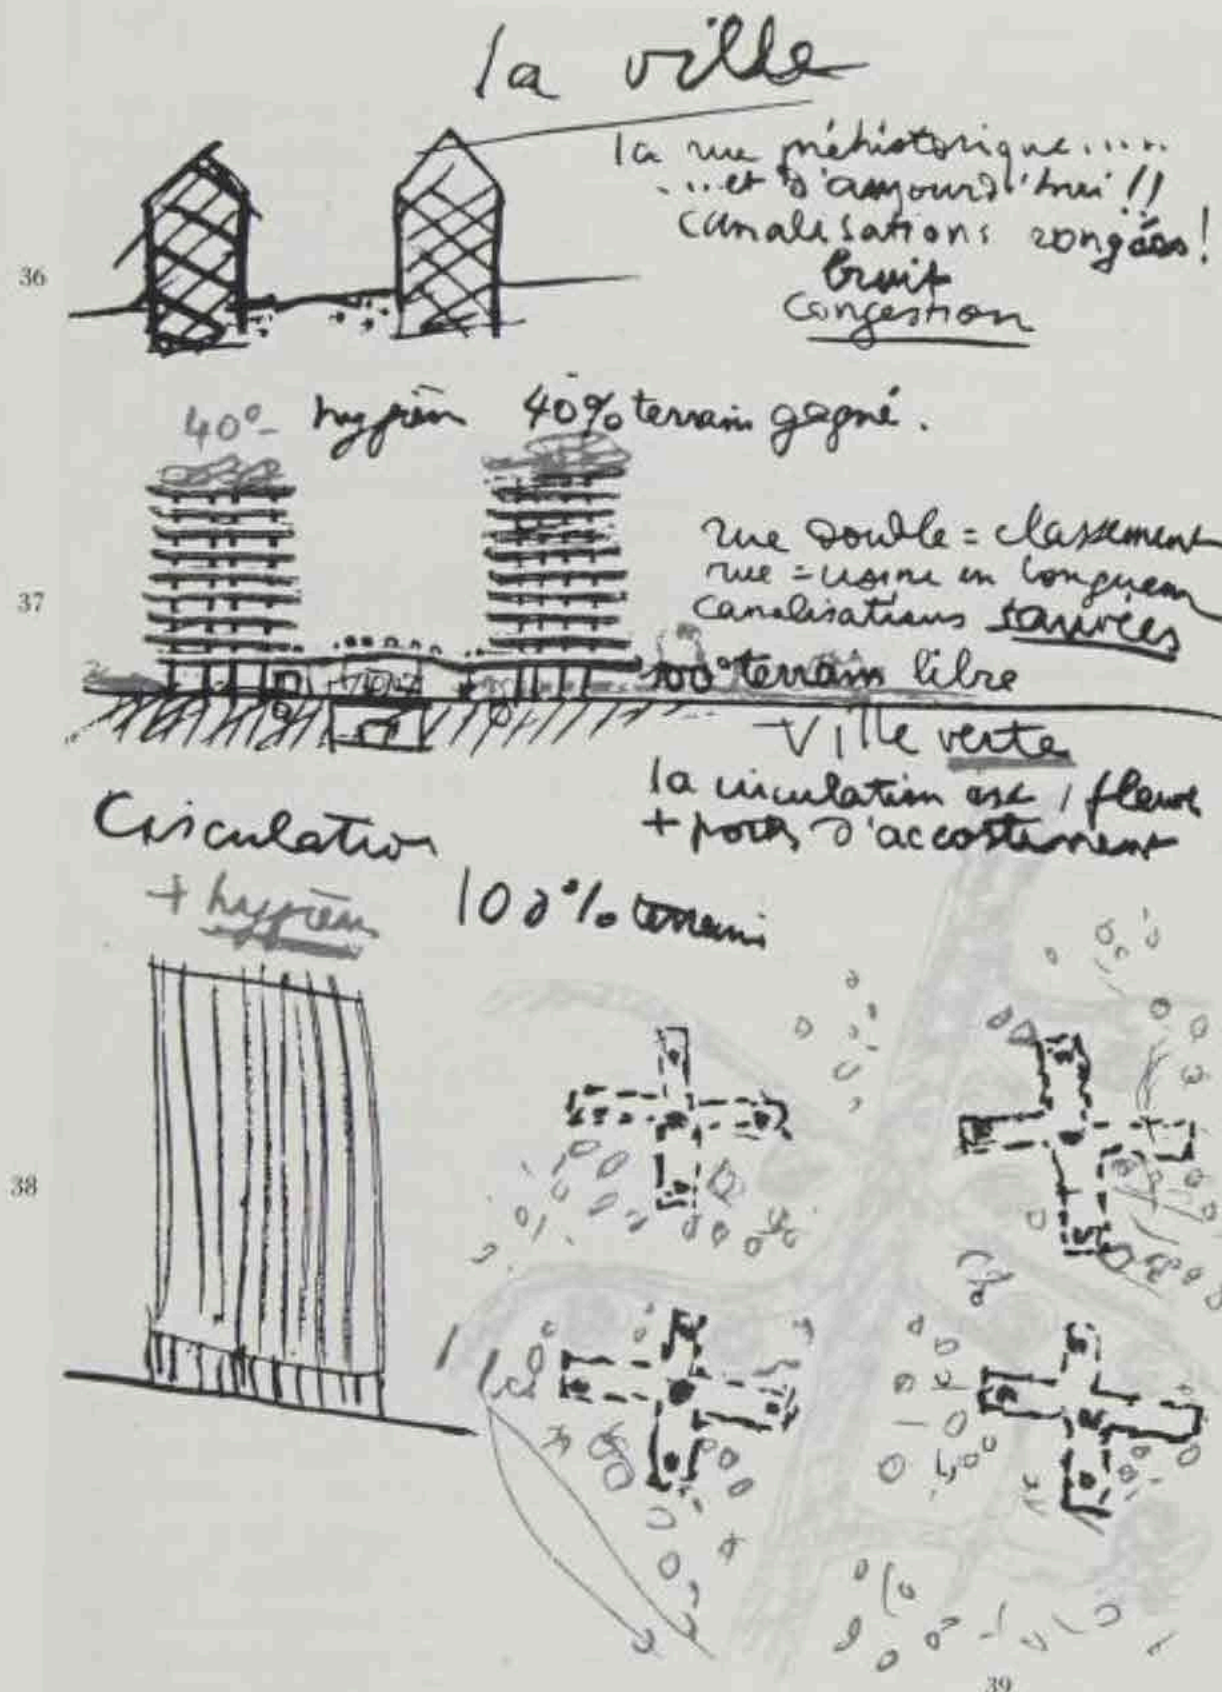 la ville
la rue préhistorique.....
...et d'aujourd'hui !!
canalisations rongées !
bruit
congestion
36
40%
hygièn
40% terrain gagné.
rue double = classement
rue = usine en longueur
37
canalisations sauvées
100% terrain libre
Ville verte
la circulation est 1 fleuve
+ ports d'accostement
Circulation
+ hygièn
100% terrain
38
39